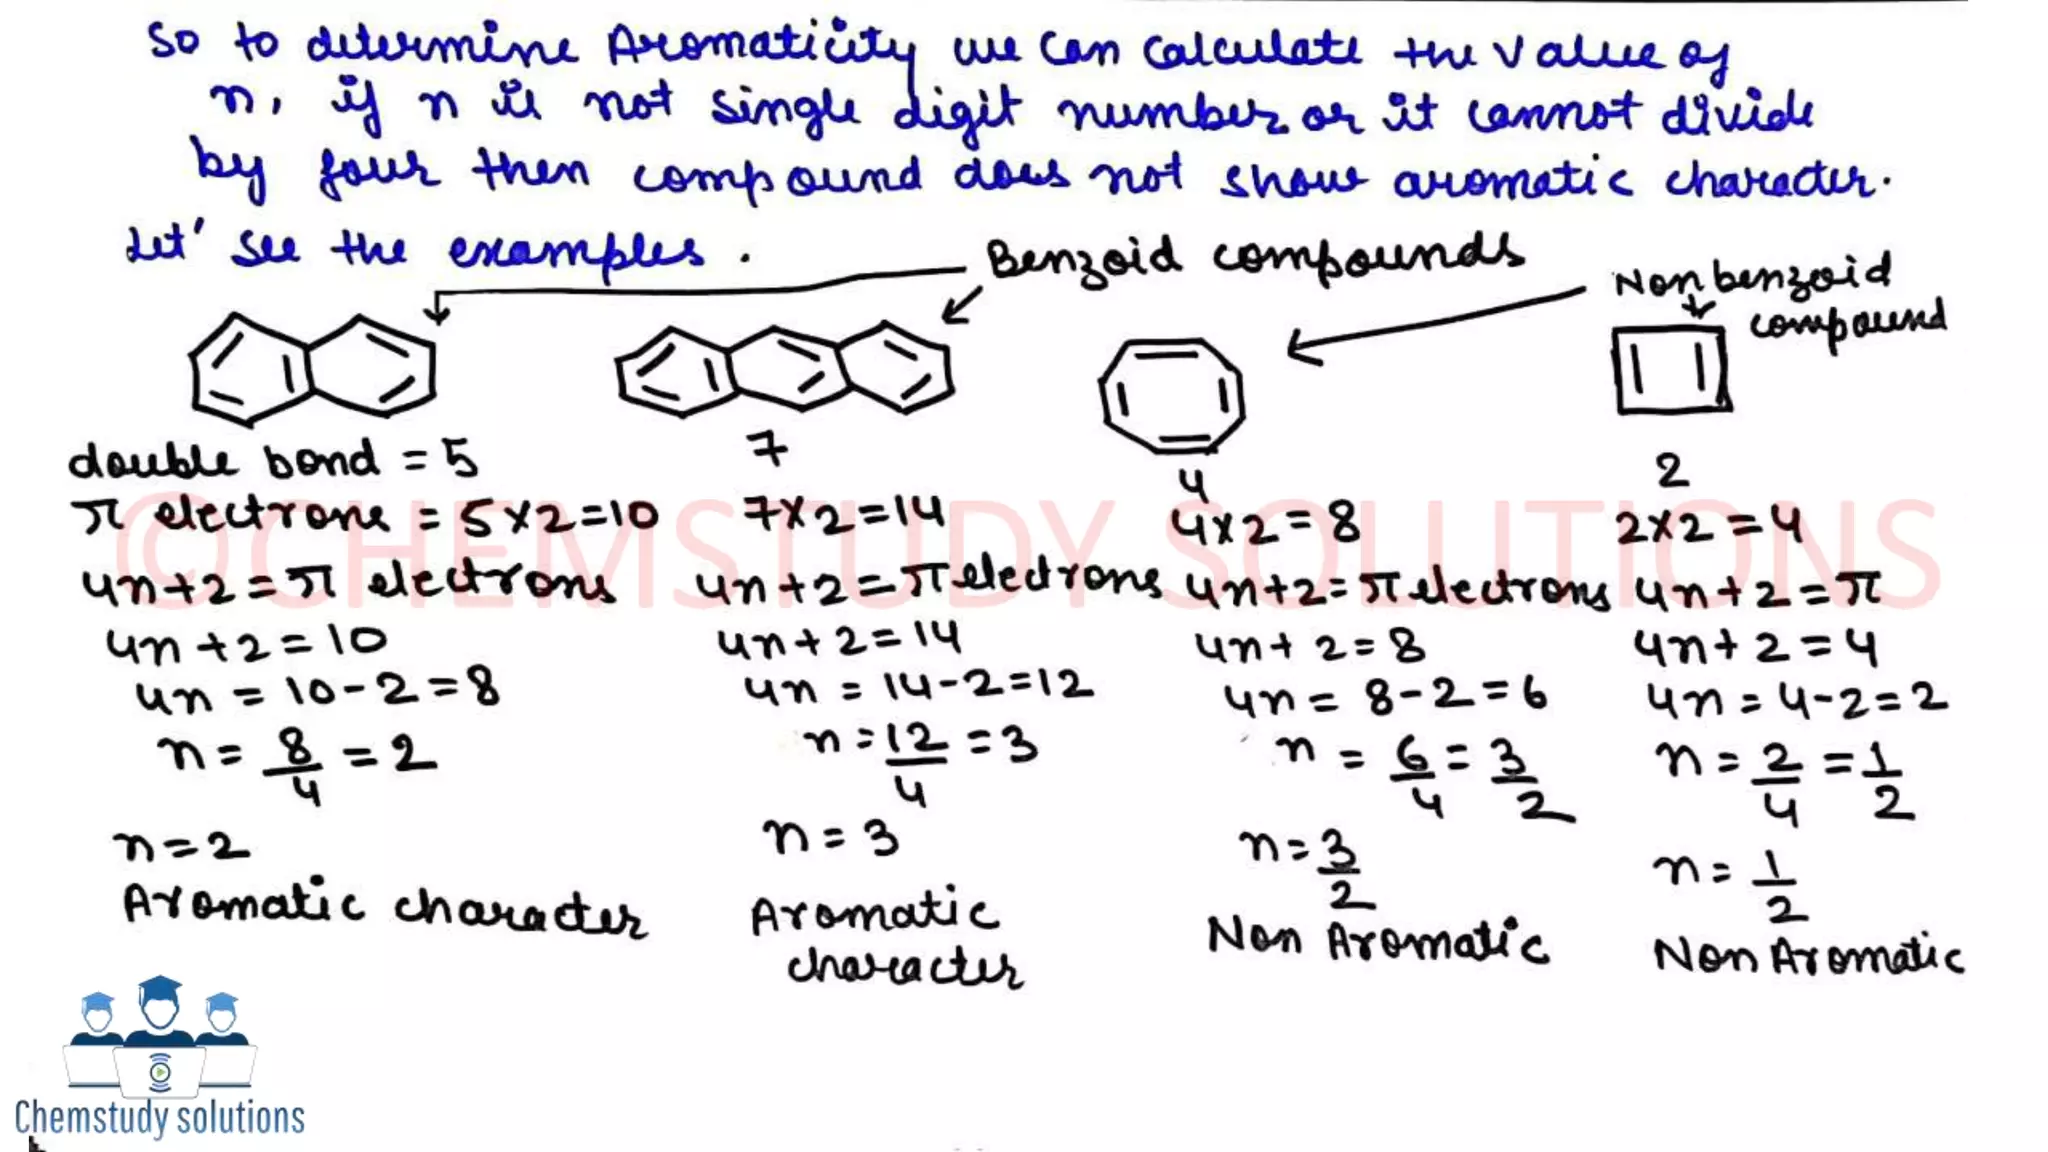 So to determine Aromaticity we can calculate the value of
n, if n is not single digit number or it cannot divide
by four then compound does not show aromatic character.
Let' see the examples.
Benzoid compounds
Non benzoid
compound
double bond = 5
7
4
2
π electrons = 5×2=10
7×2=14
4×2=8
2×2=4
4n+2=π electrons
4n+2=π electrons
4n+2=π electrons
4n+2=π
4n+2=10
4n+2=14
4n+2=8
4n+2=4
4n = 10-2=8
4n = 14-2=12
4n = 8-2=6
4n = 4-2=2
n = 8/4 = 2
n = 12/4 = 3
n = 6/4 = 3/2
n = 2/4 = 1/2
n=2
n=3
n=3/2
n=1/2
Aromatic character
Aromatic
character
Non Aromatic
Non Aromatic
©CHEMSTUDY SOLUTIONS
Chemstudy solutions